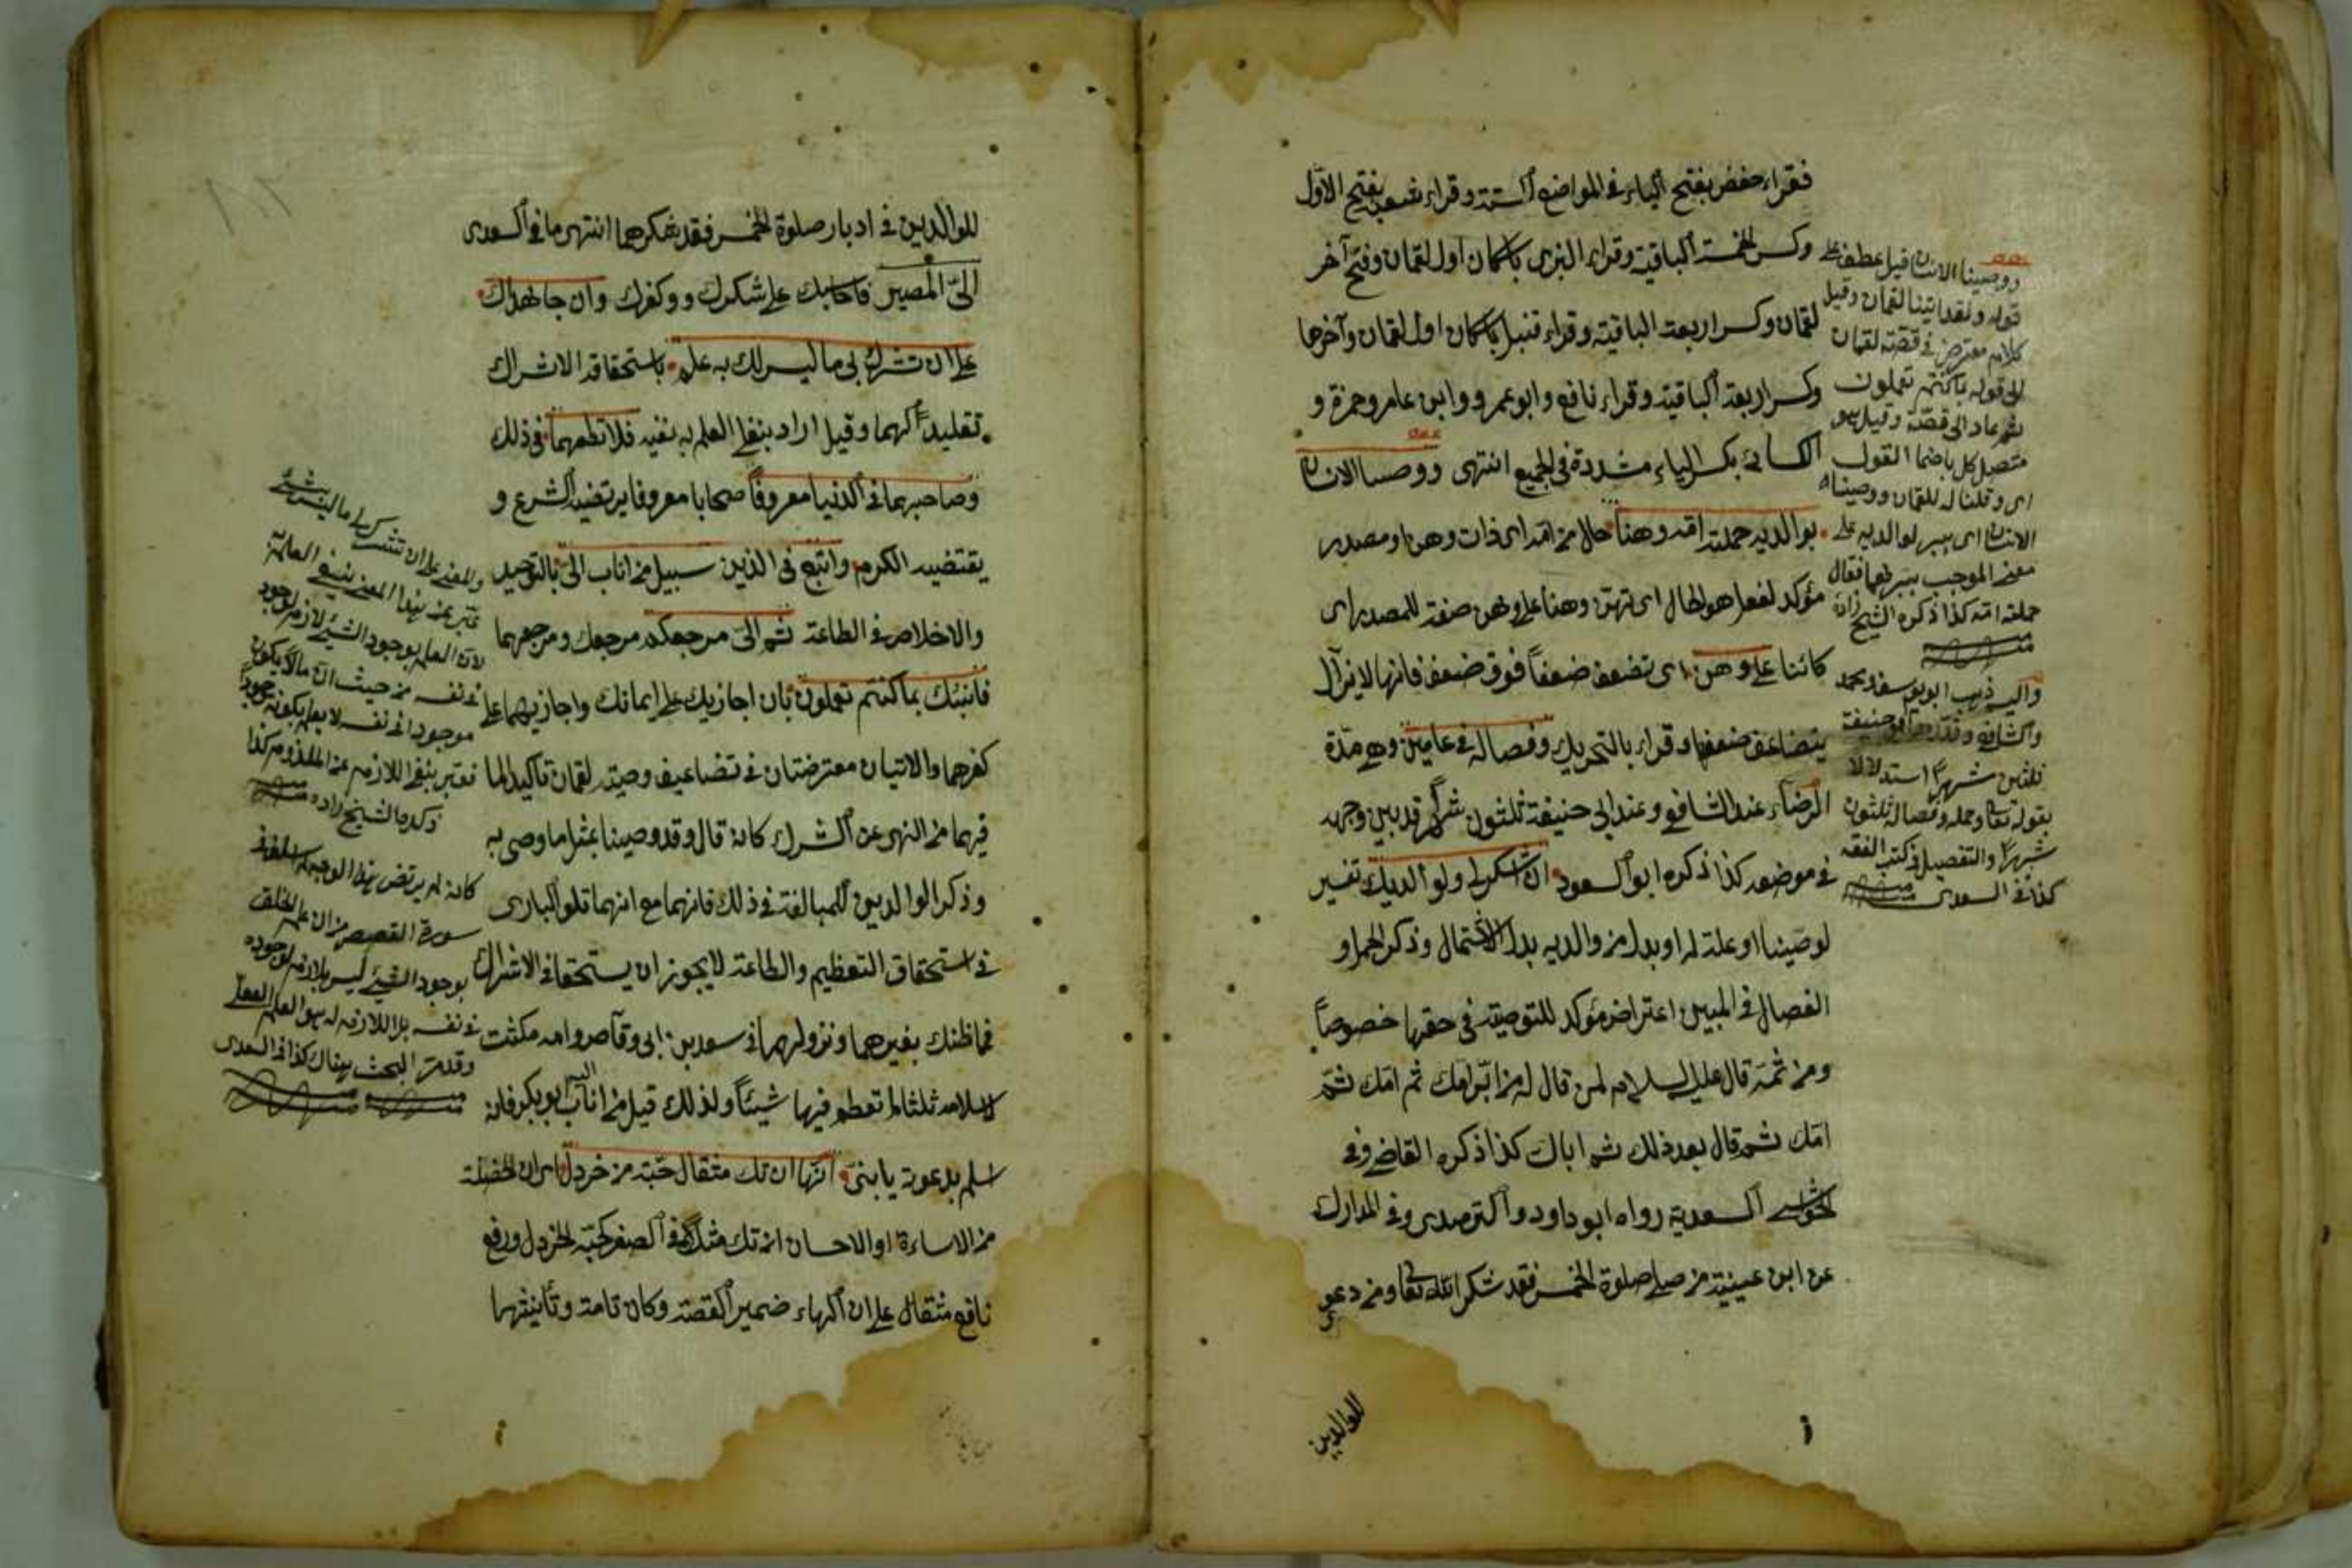 فقراء حفص بفتح الياء في المواضع الستة وقراء شعبة بفتح الاول
وكسر الخمسة الباقية وقراء البزى باسكان اول لقمان وفتح آخر
لقمان وكسر اربعة الباقية وقراء قنبل باسكان اول لقمان وآخرها
وكسر اربعة الباقية وقراء نافع وابو عمرو وابن عامر وحمزة و
الكسائى بكسر الياء مشددة في الجميع انتهى ووصينا الانسان
بوالديه حملته امه وهنا حال من امه اى ذات وهن او مصدر
مؤكد لفعل هو الحال اى تهن وهنا على وهن صفة للمصدر اى
كائنا على وهن اى تضعف ضعفاً فوق ضعف فانها لا يزال
يتضاعف ضعفها وقراء بالتحريك وفصاله في عامين وهي مدة
الرضاع عند الشافعي وعند ابى حنيفة ثلثون شهراً قد بين وجهه
في موضعه كذا ذكره ابو السعود ان اشكر لى ولوالديك تفسير
لوصينا او علة له او بدل من والديه بدل الاشتمال وذكر الحمل و
الفصال في البين اعتراض مؤكد للتوصية في حقها خصوصاً
ومن ثمة قال عليه السلام لمن قال له من ابر امك ثم امك ثم
امك ثم قال بعد ذلك ثم اباك كذا ذكره القاضى وفى
الحواشى السعدية رواه ابو داود والترمذى وفى المدارك
عن ابن عيينة من صلى صلوة الخمس فقد شكر الله تعا ومن دعى
للوالدين
ووصينا الانسان قيل عطف على
قوله ولقد اتينا لقمان وقيل
كلام معترض في قصة لقمان
الى قوله بما كنتم تعملون
ثم عاد الى قصة وقيل هو
متصل كل باضمار القول
اى وقلنا له للقمان ووصيناه
الانسان اى يبر لوالديه على
معنى الموجب ببرهما فقال
حملته امه كذا ذكره الشيخ زاده
واليه ذهب ابو يوسف ومحمد
والشافعى وقدره ابو حنيفة
ثلثين شهراً استدلالا
بقوله تعا وحمله وفصاله ثلثون
شهراً والتفصيل في كتب الفقه
كذا في السعدى
للوالدين في ادبار صلوة الخمس فقد شكرهما انتهى ما في السعدى
الىّ المصير فاحاسبك على شكرك وكفرك وان جاهداك
على ان تشرك بى ما ليس لك به علم باستحقاقه الاشراك
تقليداً لهما وقيل اراد بنفى العلم به نفيه فلا تطعهما في ذلك
وصاحبهما في الدنيا معروفاً صحابا معروفا يرتضيه الشرع و
يقتضيه الكرم واتبع في الذين سبيل من اناب الىّ بالتوحيد
والاخلاص في الطاعة ثم الىّ مرجعكم مرجعك ومرجعهما
فانبئك بما كنتم تعملون بان اجازيك على ايمانك واجازيهما على
كفرهما والاتيان معترضتان في تضاعيف وصية لقمان تأكيدا لما
فيهما من النهى عن الشرك كانه قال وقد وصينا بمثل ما وصى به
وذكر الوالدين للمبالغة في ذلك فانهما مع انهما تلو البارى
في استحقاق التعظيم والطاعة لا يجوز ان يستحقا في الاشراك
فما ظنك بغيرهما ونزولهما في سعد بن ابى وقاص وامه مكثت
لاسلامه ثلثا لم تطعم فيها شيئاً ولذلك قيل من اناب اليه ابو بكر فانه
اسلم بدعوته يا بنىّ انها ان تك مثقال حبة من خردل اى ان الخصلة
من الاساءة او الاحسان ان تك مثلا في الصغر كحبة الخردل ورفع
نافع مثقال على ان الهاء ضمير القصة وكان تامة وتأنيثها
والمعنى على ان تشرك بى ما ليس بشئ
عبر عن هذا المعنى بنفى العلم به
لان العلم بوجود الشئ لازم لوجود
في نفسه من حيث ان ما لا يكون
موجودا في نفسه لا يعلم بكونه موجوداً
فعبر بنفى اللازم عن الملزوم كذا
ذكره الشيخ زاده
كانه لم يرتض هذا الوجه
سورة القصص من ان علم الخلق
بوجود الشئ ليس بلازم لوجوده
في نفسه بل اللازم له هو العلم الفعلى
وقد مر البحث هناك كذا في السعدى